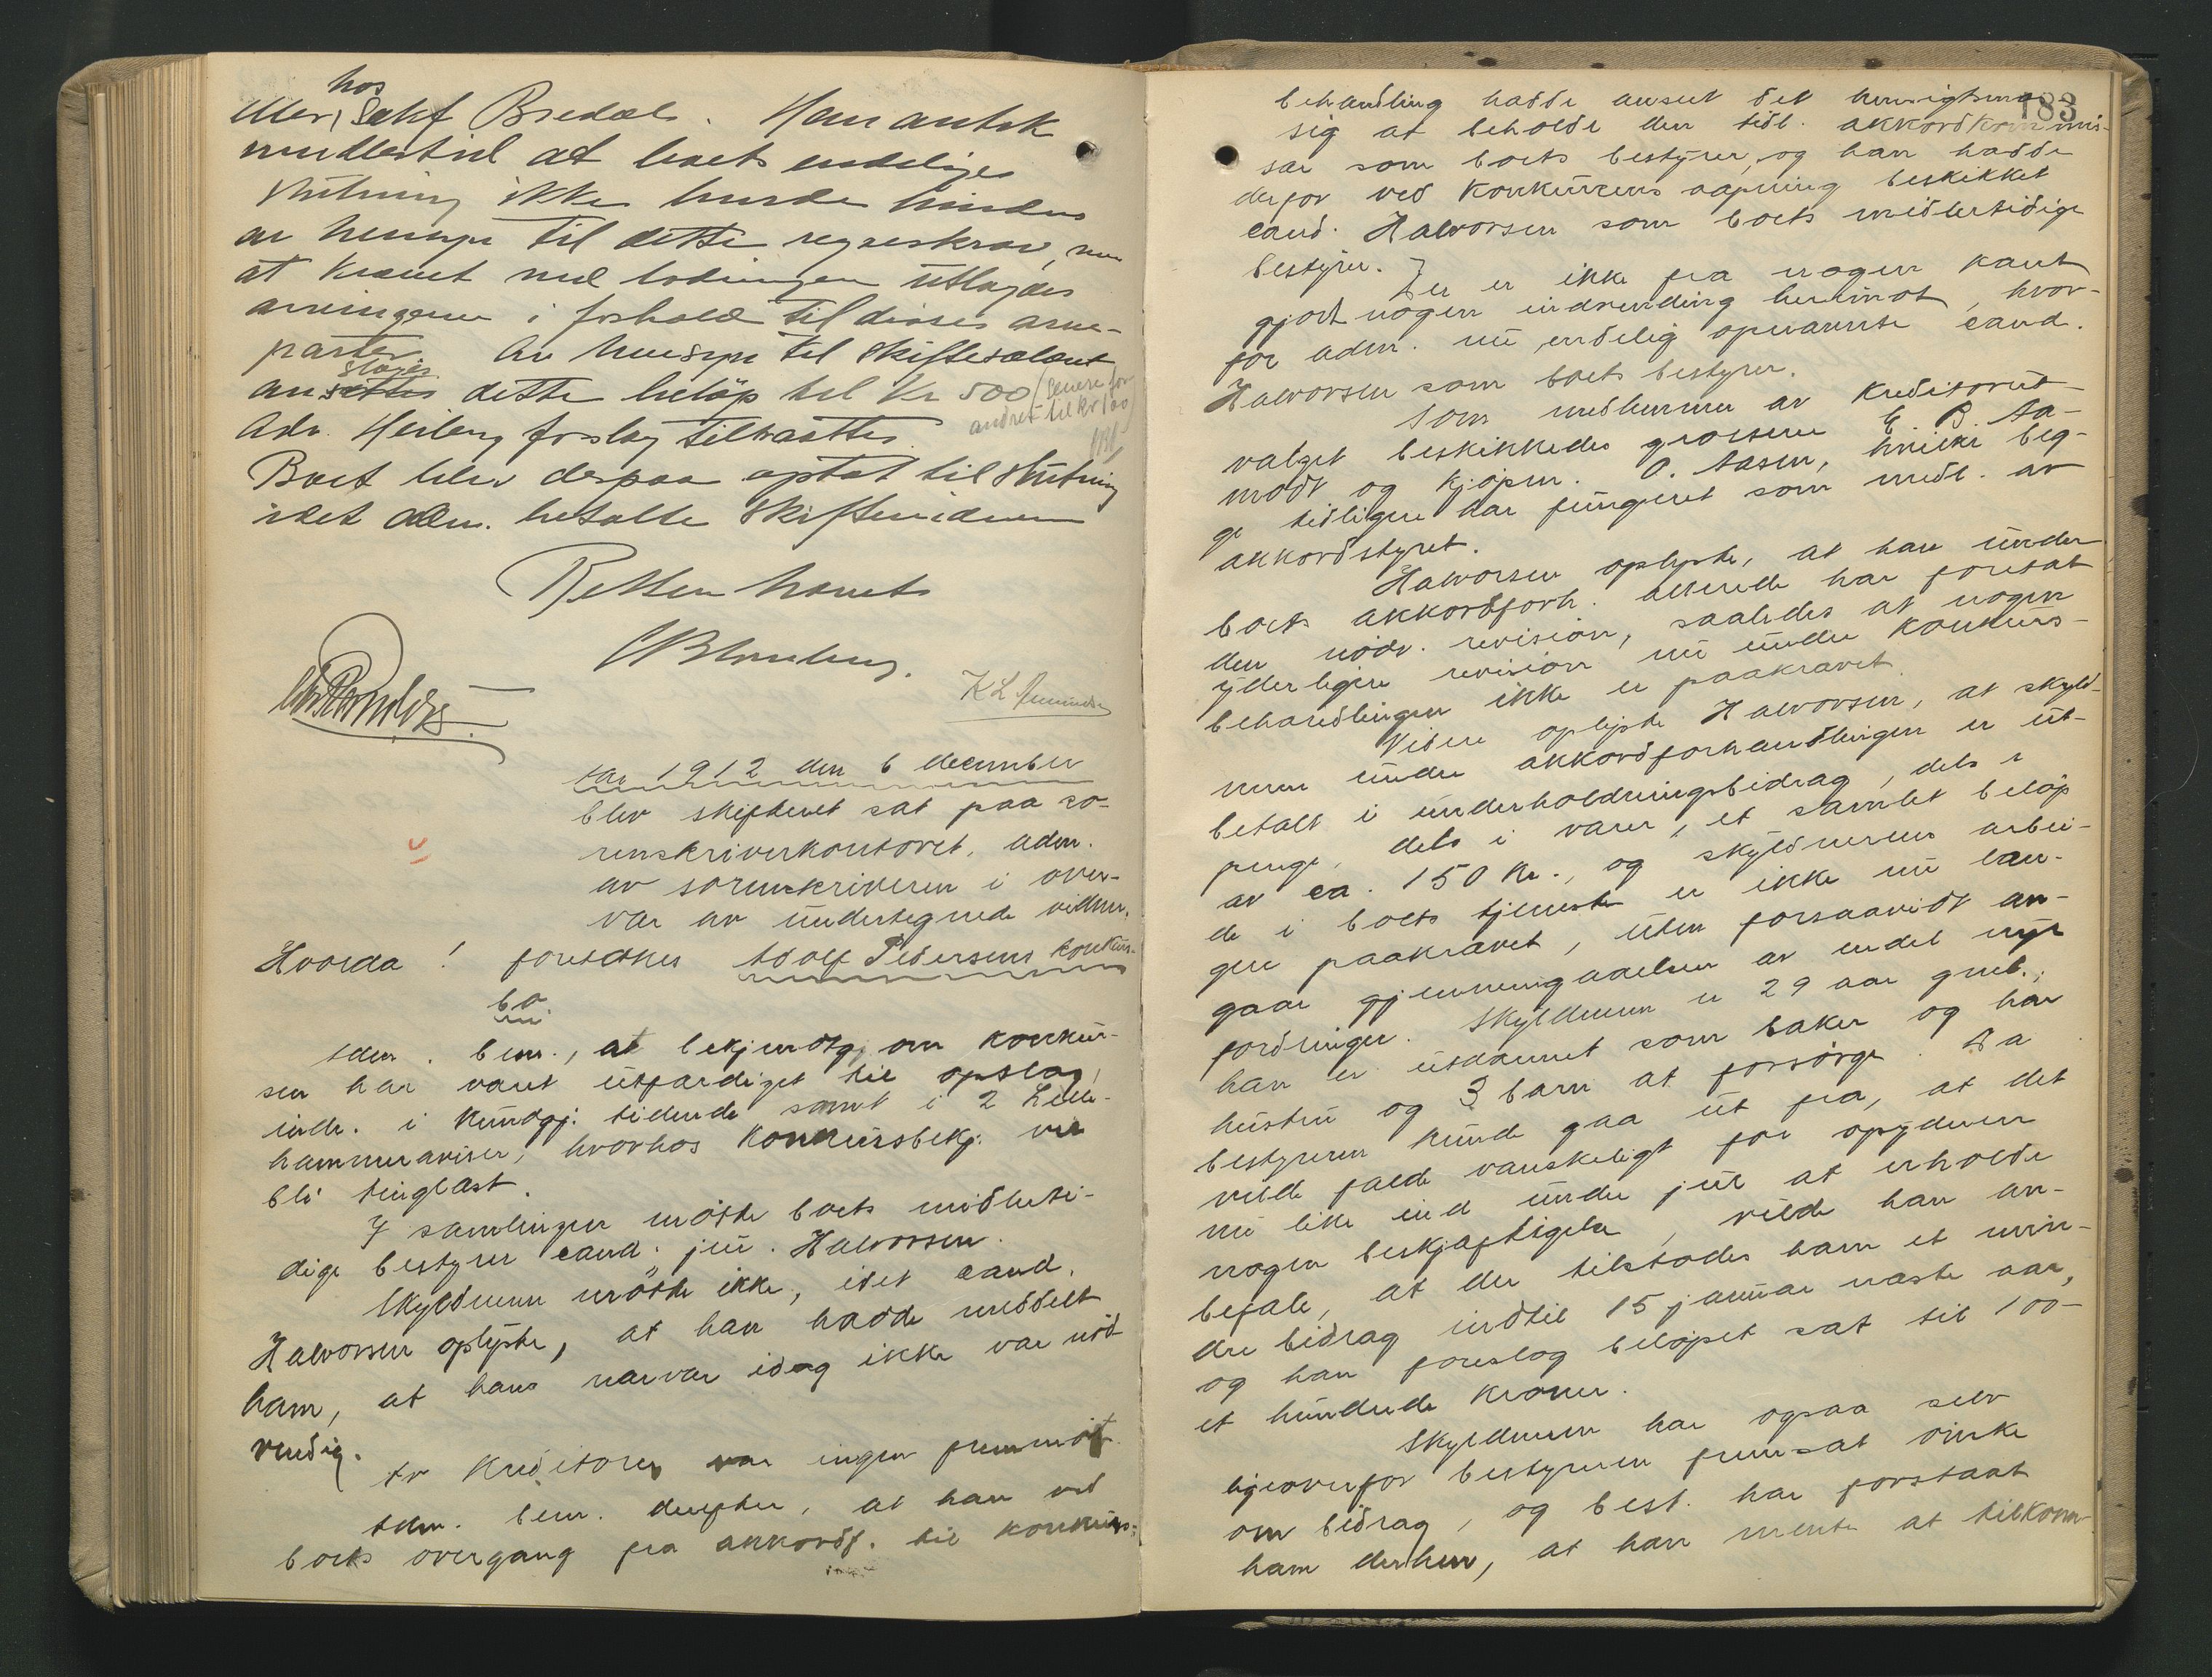 hos
eller, Sakf Bredals. Han antok
imidlertid at boets endelige
slutning ikke burde hindres
av hensyn til dette regreskrav, men
at kravet med lodningen utlagdes
arvingerne i forhold til disses arve-
parter. Av hensyn til skiftesalæret
slages
ansættes dette beløp til kr 500 (senere for
andret til kr 100)
Adv. Heiberg forslag tiltraattes.
Boet blev derpaa optat til slutning
idet adm. betalte skiftevidnerne
Retten hævet
K L Amundsen
Aar 1912 den 6 december
blev skifteret sat paa so-
renskriverkontoret, adm.
av sorenskriveren i over-
vær av undertegnede vidner.
Hvorda! foretokes Adolf Pedersens konkurs-
bo.
Adm. bem., at bekjendtg. om konkur-
sen har været utfærdiget til opslag,
indr. i Kundgj. tidende samt i 2 Lille-
hammeraviser, hvorhos konkursbekj. vil
bli tinglæst.
I samlingen møtte boets midlerti-
dige bestyrer cand. jur. Halvorsen.
Skyldneren møtte ikke, idet cand.
Halvorsen oplyste, at han hadde meddelt
ham, at hans nærvær idag ikke var nød-
vendig.
Av kreditorer var ingen fremmøtt.
Adm. bem. derefter, at han ved
boets overgang fra akkordf. til konkurs-
183
behandling hadde anset det hensigtsmæs-
sig at beholde den tidl. akkordkommis-
sær som boets bestyrer, og han hadde
derfor ved konkursens aapning beskikket
cand. Halvorsen som boets midlertidige
bestyrer.
Der er ikke fra nogen kant
gjort nogen indvending herimot, hvor-
for adm. nu endelig opnævnte cand.
Halvorsen som boets bestyrer.
Som medlemmer av kreditorut-
valget beskikkedes grosserer E. B. Aa-
modt og kjøpm. O. Aasen, hvilke beg-
ge tidligere har fungeret som medl. av
akkordstyret.
Halvorsen oplyste, at han under
boets akkordforh. allerede har foretat
den nødv. revision, saaledes at nogen
yderligere revision nu under konkurs-
behandlingen ikke er paakrævet.
Videre oplyste Halvorsen, at skyld-
neren under akkordforhandlingen er ut-
betalt i underholdningsbidrag, dels i
penge, dels i varer, et samlet beløp
av ca. 150 kr., og skyldnerens arbei-
de i boets tjeneste er ikke nu læn-
gere paakrævet, uten forsaavidt an-
gaar gjennemgaaelsen av endel nye
fordringer. Skyldneren er 29 aar gml.;
han er utdannet som baker og har
hustru og 3 barn at forsørge. Da
bestyreren kunde gaa ut fra, at det
vilde falde vanskeligt for opyderen
nu like ind under jul at erholde
nogen beskjæftigelse, vilde han an-
befale, at der tilstodes ham et min-
dre bidrag indtil 15 januar næste aar,
og han foreslog beløpet sat til 100-
et hundrede kroner.
Skyldneren har ogsaa selv
likeoverfor bestyreren fremsat ønske
om bidrag, og best. har forstaat
ham derhen, at han mente at tilkom-